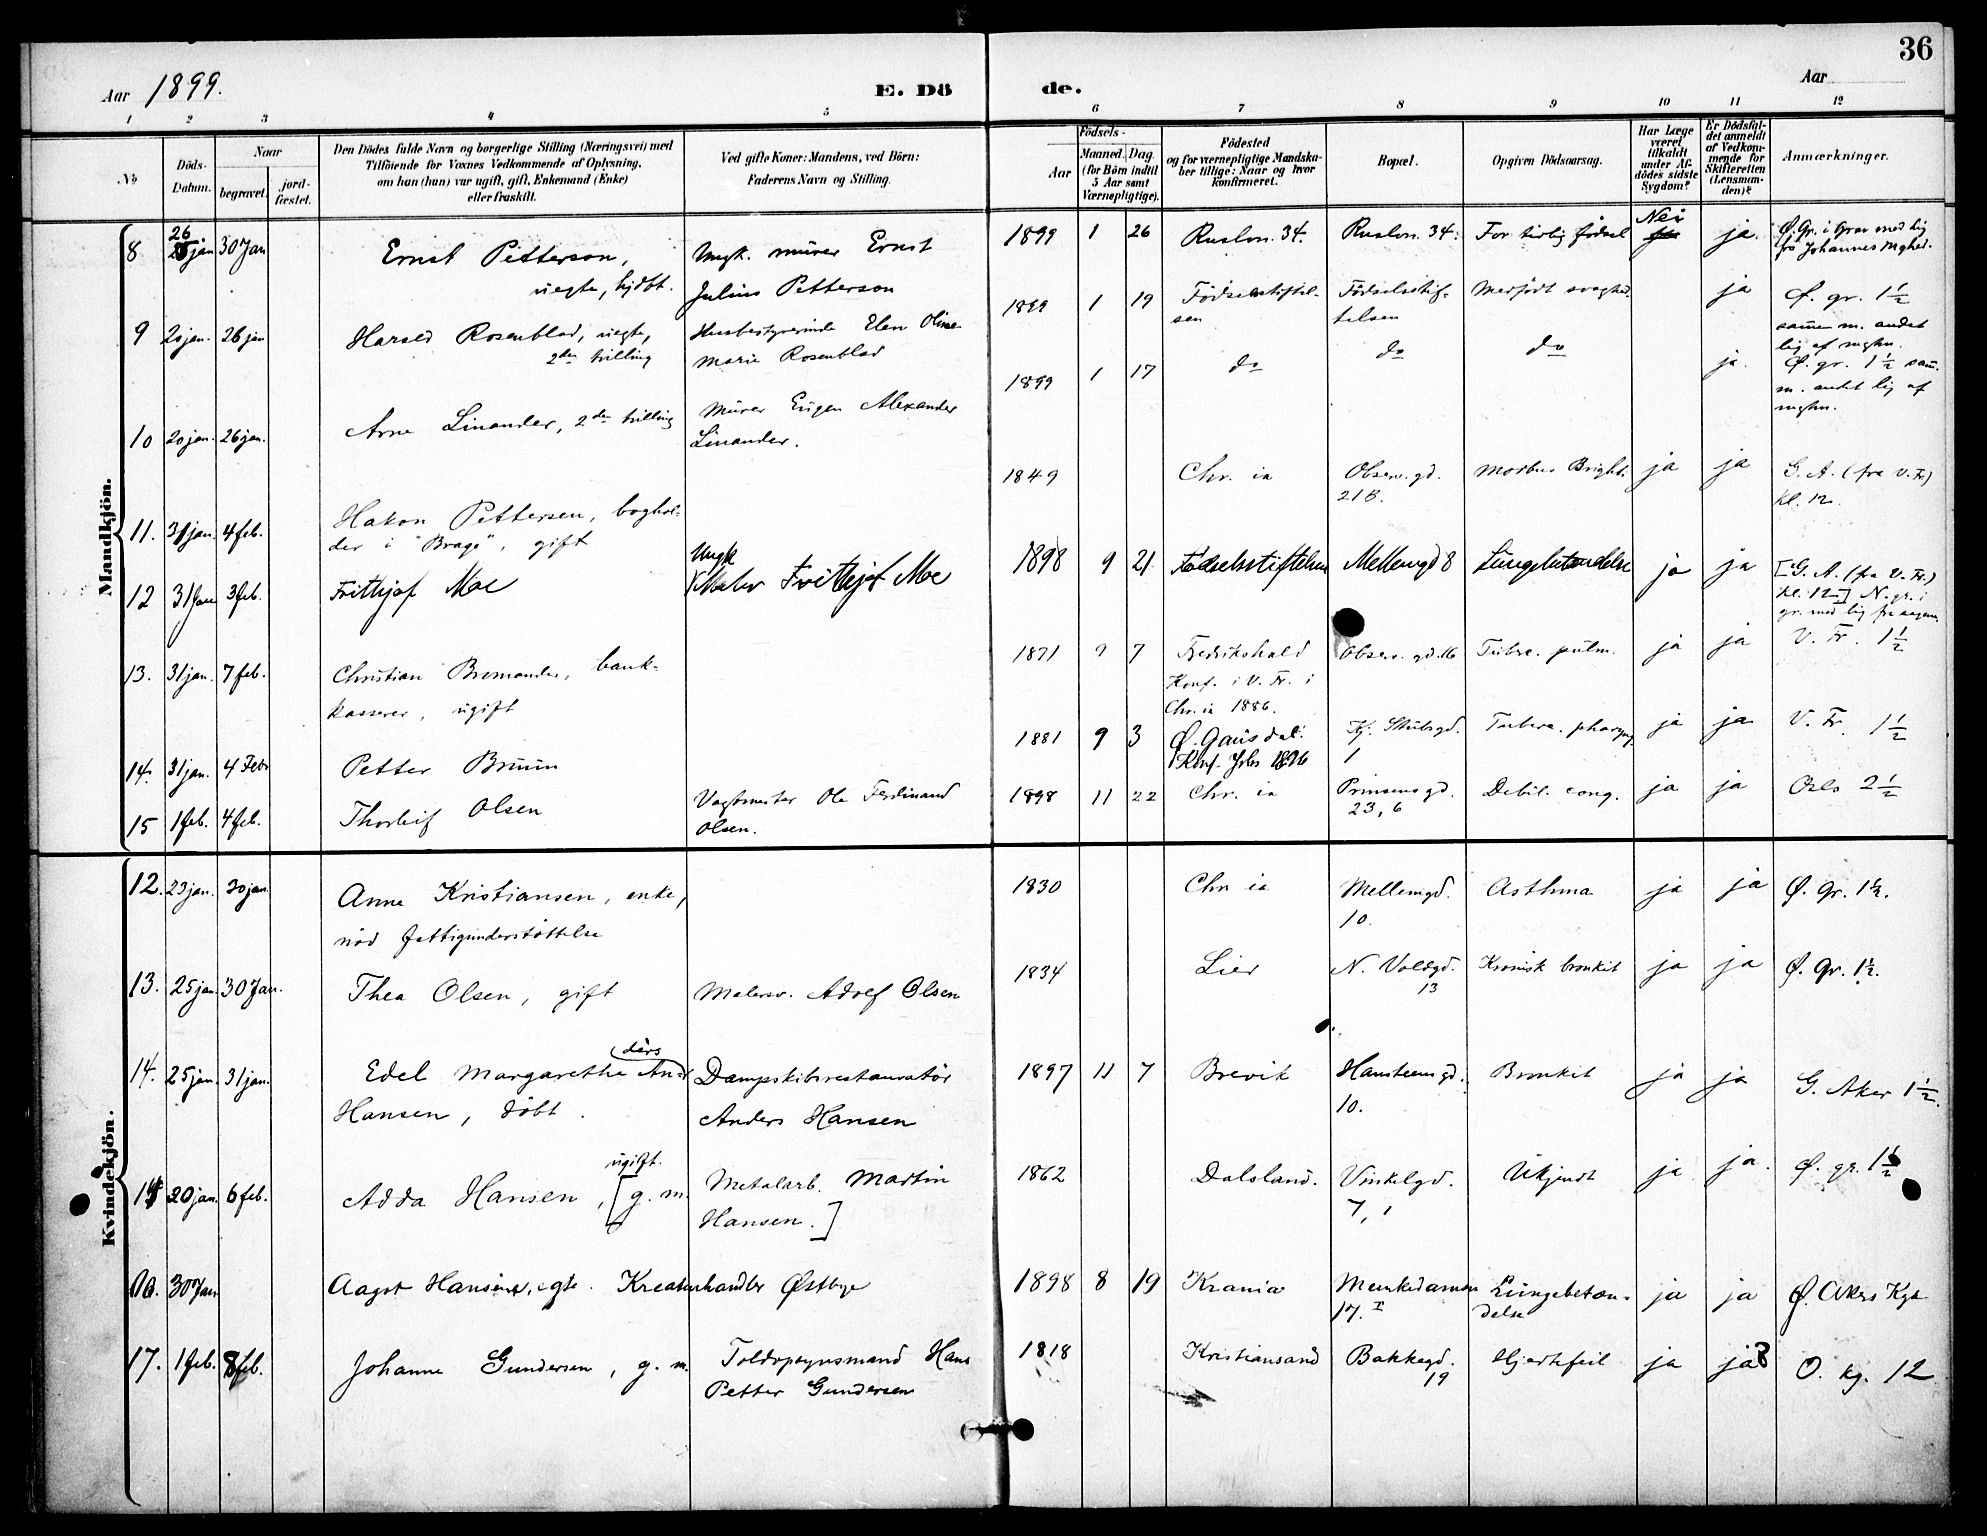 36
Aar 1899.
E. Dö
de.
Aar
1 2 3 4 5 6 7 8 9 10 11 12
No
Döds-Datum.
Naar
begravet.
jord-fæstet.
Den Dödes fulde Navn og borgerlige Stilling (Næringsvei) med
Tilföiende for Voxnes Vedkommende af Oplysning,
om han (hun) var ugift, gift, Enkemand (Enke)
eller fraskilt.
Ved gifte Koner: Mandens, ved Börn:
Faderens Navn og Stilling.
Födsels-
Aar
Maaned. Dag
(for Börn indtil
5 Aar samt
Værnepligtige).
Födested
og for værnepligtige Mandska-
ber tillige: Naar og hvor
konfirmeret.
Bopæl.
Opgiven Dödsaarsag.
Har Læge
været
tilkaldt
under Af-
dödes sidste
Sygdom?
Er Dödsfal-
det anmeldt
af Vedkom-
mende for
Skifteretten
(Lensman-
den)?
Anmærkninger.
Mandkjön.
8 26 jan 30 Jan Ernst Petterson, Ungk. murer Ernst 1899 1 26 Ruslön. 34. Ruslön. 34. For tidlig födsel Nei ja. Ø. Gr. i Grav med lig
uegte, hjdbt. Julius Petterson fra Johannes mghed.
9 20 jan. 26 jan Harald Rosenblad, uegte, Husbestyrerinde Elen Oline 1899 1 19 Födselsstiftel- Födselsstif- Medfödt svaghed. ja Ø. gr. 1½
2den tvilling Marie Rosenblad sen telsen samm m. andet
lig af mghn.
10 20 jan. 26 jan. Arne Linander, 2den tvilling Murer Eugen Alexander 1899 1 17 do do do ja. Ø. gr. 1½ sam.
Linander. m. andet lig af
mghn.
11. 31 jan. 4 feb. Hakon Pettersen, boghol- 1849 Chr. ia Observ. gd. Morbus Brighti ja ja G. A. (fra V. Fr.)
der i "Brage", gift 21 B. kl. 12.
12 31 Jan 3 feb. Frithjof Moe Ungk Maler Frithjof Moe 1898 9 21 Födselsstiftelsen Mellemgd 8 Lungebetændelse ja ja [G. A. (fra V. Fr.)
kl. 12] N. gr. i
gr. med lig fra sagene
13. 31 jan. 7 feb. Christian Bremander, bank- 1871 9 7 Fredrikshald Observ. gd. 16 Tuberc. pulm. ja ja V. Fr. 1½
kasserer, ugift Konf. i V. Fr. i
Chr. ia 1886.
14. 31 jan. 4 Febr Petter Bruun 1881 9 3 Ø. Gausdal. Kj. Stubsgd. Tuberc. pharyng. ja ja V. Fr. 1½
Konf. Jvbr 1896 1
15 1 feb. 4 feb. Thorleif Olsen Vagtmester Ole Ferdinand 1898 11 22 Chr. ia Prinsensgd. Debil. cong. ja ja Oslo 2½
Olsen. 23, 6
Kvindekjön.
12. 23 jan. 30 jan Anne Kristiansen, enke, 1830 Chr ia Mellemgd. Asthma ja ja Ø. Gr. 1½.
nöd fattigunderstöttelse 10.
13. 25 jan. 30 Jan. Thea Olsen, gift Malersv. Adolf Olsen 1834 Lier N. Voldgd. Kronisk bronkit ja ja Ø. Gr. 1½.
13
14. 25 jan. 31 jan. Edel Margarethe Anders Dampskibsrestauratör 1897 11 7 Brevik Hansteensgd. Bronkit ja ja G. Aker 1½.
Hansen, döbt. Anders Hansen 10.
15 20 jan. 6 feb. Adda Hansen, ugift. [g. m. Metalarb. Martin 1862 Dalsland. Vinkelgd. Ukjendt ja ja. Ø. gr. 1½
Hansen.] 7, 1
16. 30 Jan Aagot Hansine, egte. Kreaturhandler Østbye 1898 8 19 Krania Munkedamsv Lungebetæn- ja ja Ø. Akers Kgd
17. I delse
17. 1 feb. 8 feb. Johanne Gundersen, g. m. Toldopsynsmand Hans 1818 Kristiansand Bakkegd. Hjertefeil ja ja O. kg. 12
Petter Gundersen 19